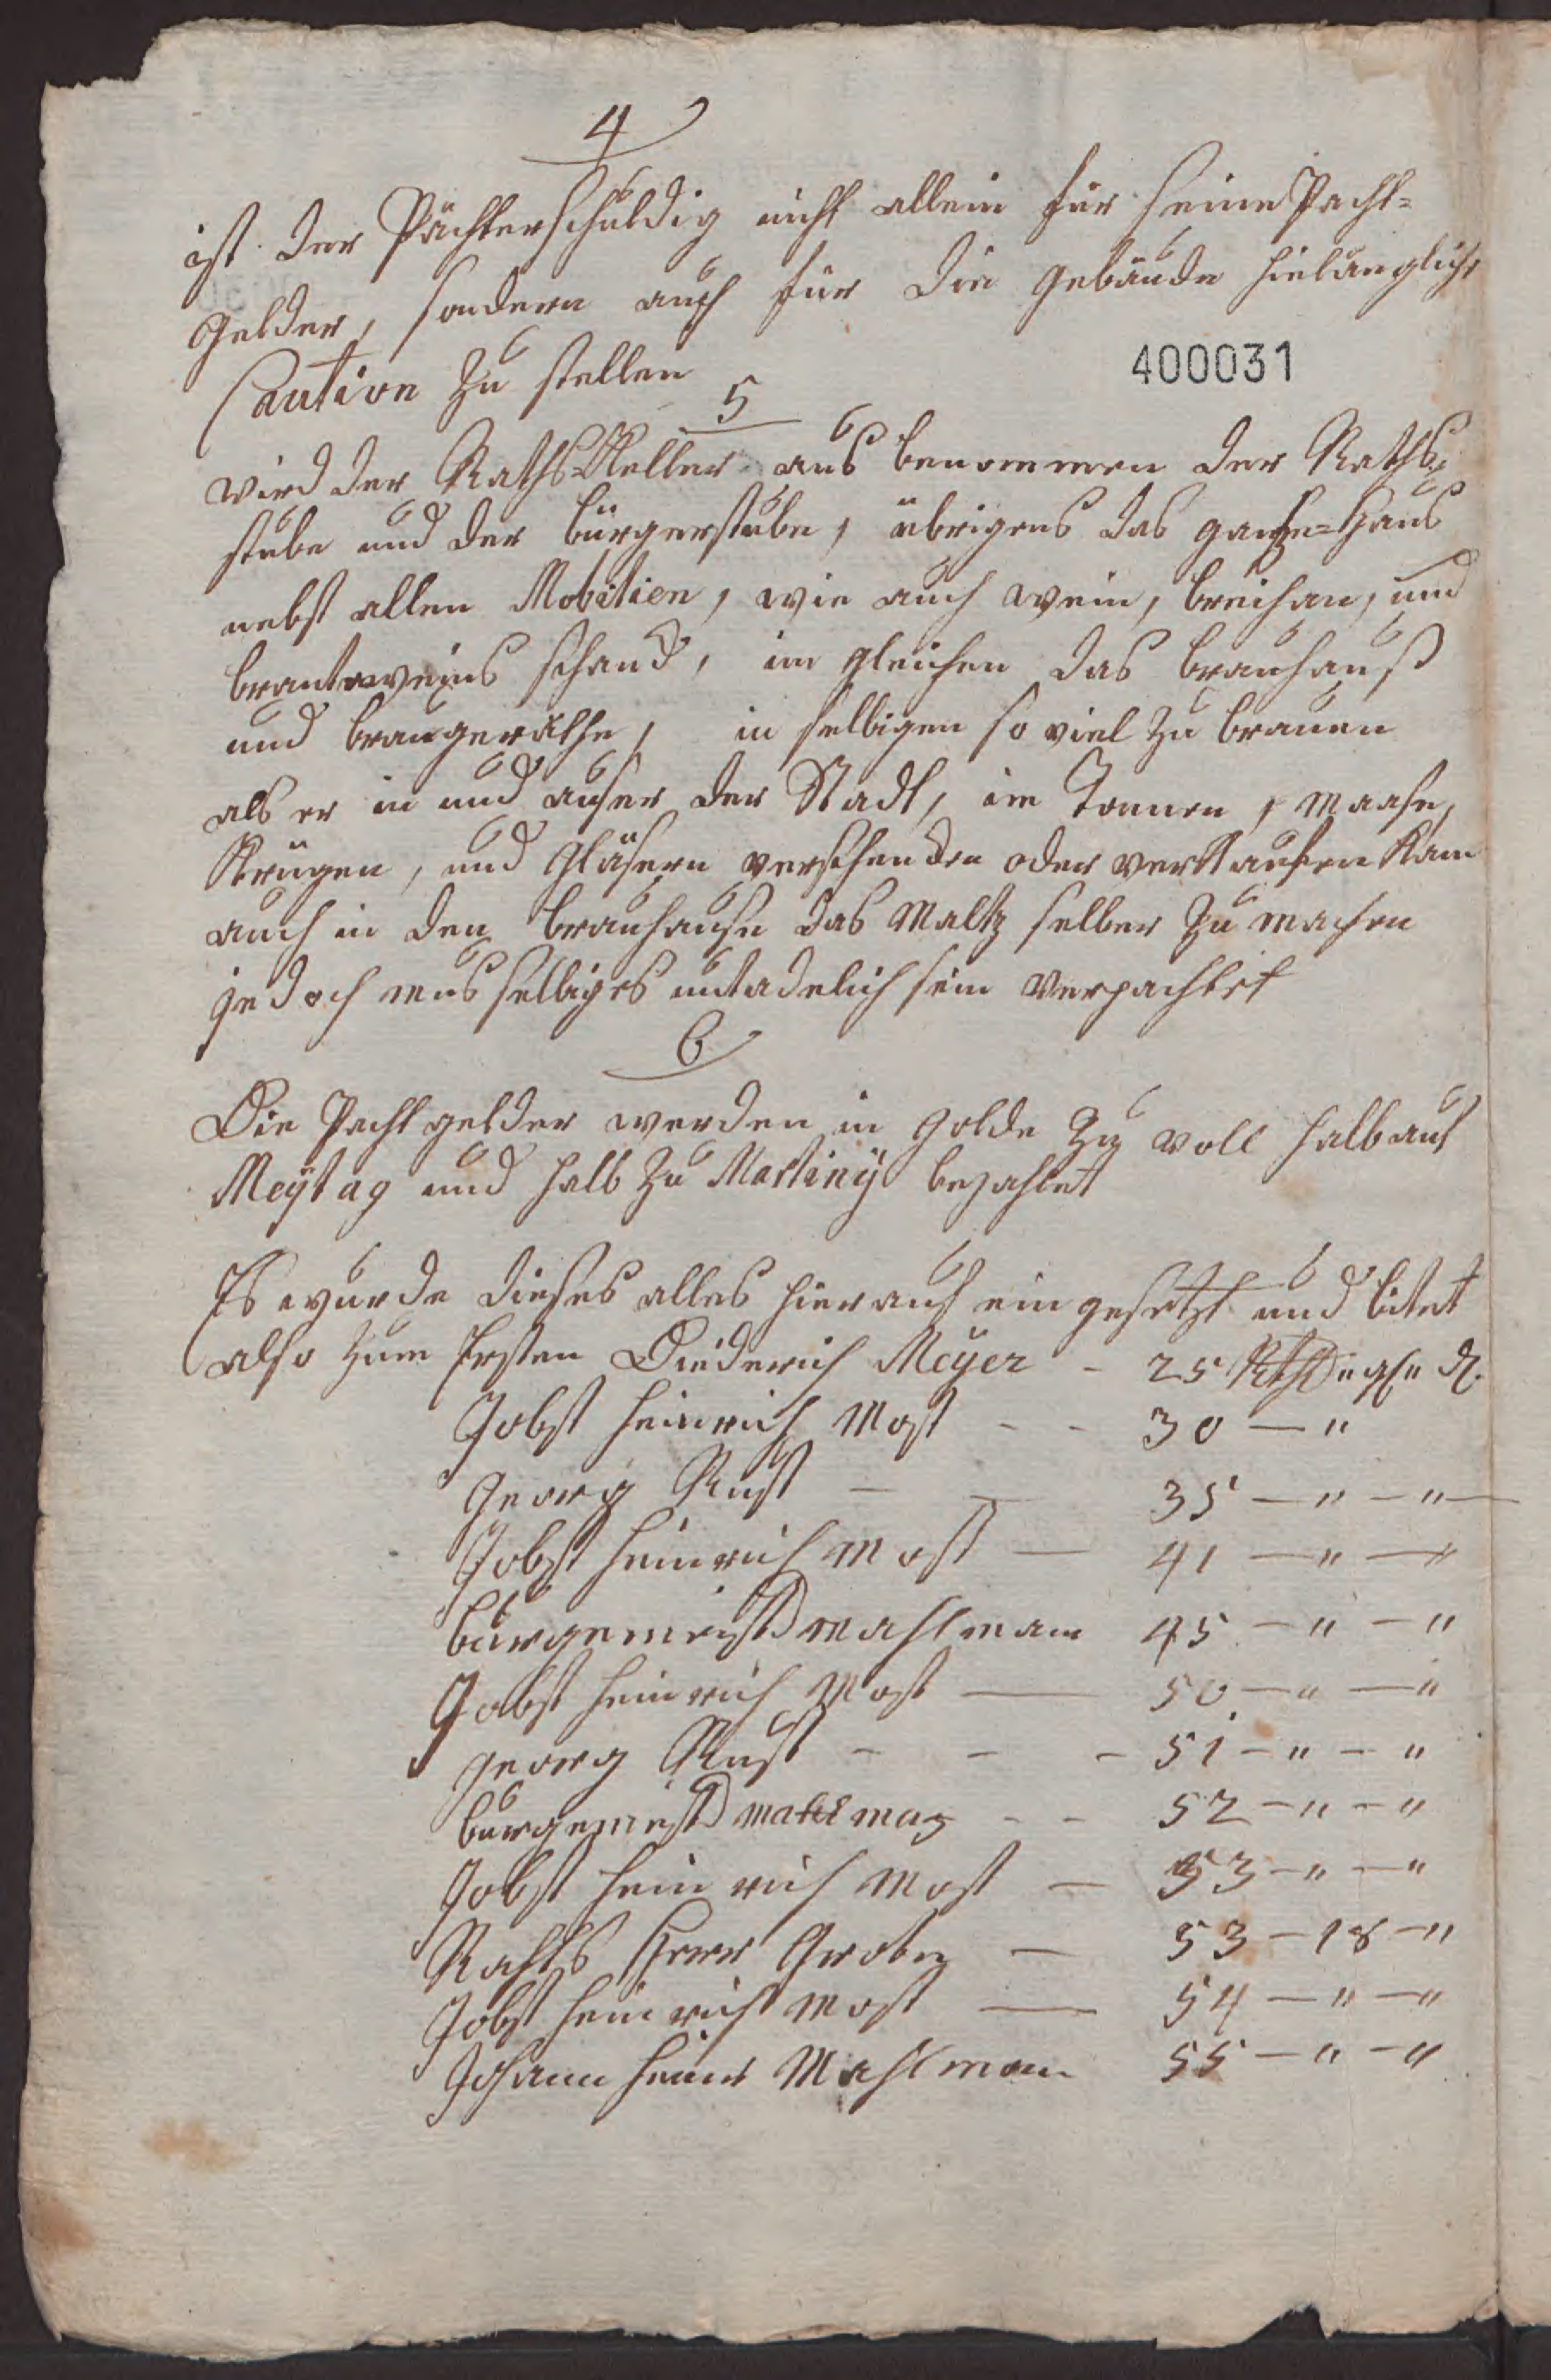 4
ist der Pächter schuldig nicht allein für seine Pacht=
gelder, sondern auch für die gebäude hielänglich
Caution zu stellen
400031
5
wird der Raths Keller aus benommen der Raths=
stube und der bürgerstube, übrigens das gantze=Haus
nebst allen Mobilien, wie auch wein, breihan, und
brantweins schanck, im gleichen das brauhauß
und braugeräthe, in selbigen so viel zu brauen
als er in und auser der Stadt, im Tonnen, Maase,
Krügen, und Gläsern verschencken oder verkaufen kan
auch in den brauhause das Maltz selber zu machen
jedoch mus selbiges untadelich sein verpachtet
6
Die Pachtgelder werden in golde zu voll halb auf
Meytag und halb zu Martiny bezahlet
Es wurde dieses alles hierauf ein gesetzt und bitet
also zum Ersten Diederich Meyer - 25 Rth " gl " d.
Jobst Heinrich Most - - 30 — "
Georg Rust — — 35 — " — " —
Jobst Heinrich Most — 41 — " —
bürgemeist Mahlman 45 — " — "
Jobst Heinrich Most — 50 — " — "
Georg Rust - - - 51 — " — "
burgemeist Mahlman - - 52 — " — "
Jobst Heinrich Most — 53 — " — "
Rahts Herr Grote — 53 — 18 — "
Jobst Heinrich Most — 54 — " — "
Johann Heinr Mahlman 55 — " — "